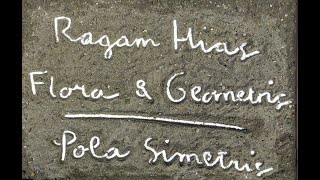 Ragam Hias
Flora & Geometris
Pola Simetris